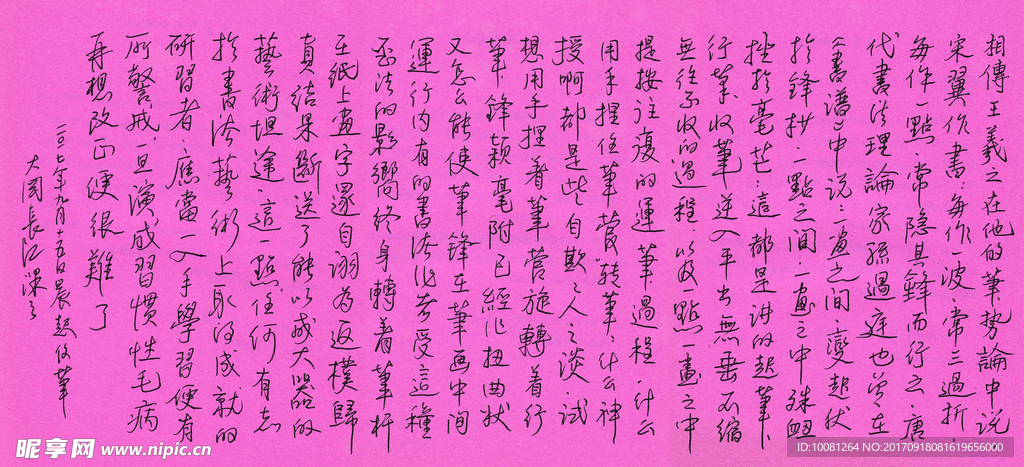 相傳王羲之在他的筆勢論中説
宋翼作書：每作一波，常三過折，
每作一點，常隐其鋒而行之。唐
代書法理論家孫過庭也曾在
《書譜》中说：一畫之间，變起伏
於鋒杪，一點之间
挫於毫芒；這都是讲的起筆、
行筆、收筆
無往不收的過程，以及一點一畫之中
提按往復的運筆過程，什么
用手捏住筆管转筆，什么神
授啊都是些自欺欺人之谈。试
想用手捏着筆管旋轉着行
筆，鋒颖毫附已經作扭曲状
又怎么能使筆鋒在筆画中间
運行
否法的影響終身轉着筆杆
在紙上畫字還自诩为返樸歸
真，结果断送了能以成大器的
藝術坦途。這一點任何有志
於書法藝術上取得成就的
研習者，應當一入手學習便有
所警戒，一旦演成習慣性毛病
再想改正便很難了
二〇一七年九月十五日晨起
大闊長江
昵享网 www.nipic.cn
ID:10081264 NO:20170918081619656000